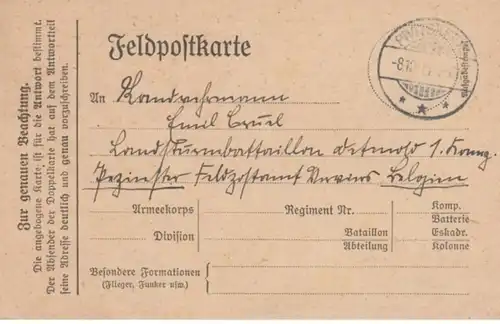 Feldpostkarte
An Landwehrmann
Emil
Landsturmbattaillon Detmold 1. Komp.
Feldpostamt Belgien
Armeekorps
Division
Regiment Nr.
Bataillon
Abteilung
Komp.
Batterie
Eskadr.
Kolonne
Besondere Formationen
(Flieger, Funker usw.)
Zur genauen Beachtung.
Die angebogene Karte ist für die Antwort bestimmt.
Der Absender der Doppelkarte hat auf dem Antwortteil
seine Adresse deutlich und genau vorzuschreiben.